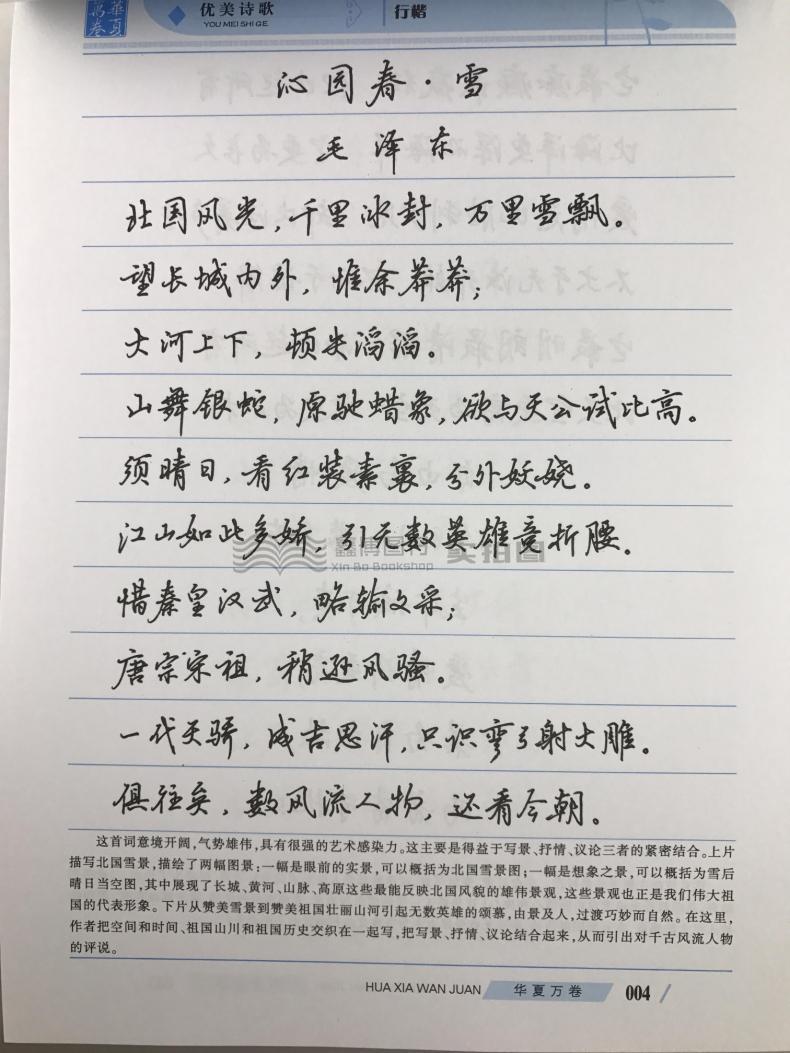 華夏萬卷
优美诗歌
YOU MEI SHI GE
行楷
沁园春·雪
毛泽东
北国风光，千里冰封，万里雪飘。
望长城内外，惟余莽莽；
大河上下，顿失滔滔。
山舞银蛇，原驰蜡象，欲与天公试比高。
须晴日，看红装素裹，分外妖娆。
江山如此多娇，引无数英雄竞折腰。
鑫博图书 实拍图
Xin Bo Bookshop
惜秦皇汉武，略输文采；
唐宗宋祖，稍逊风骚。
一代天骄，成吉思汗，只识弯弓射大雕。
俱往矣，数风流人物，还看今朝。
这首词意境开阔，气势雄伟，具有很强的艺术感染力。这主要是得益于写景、抒情、议论三者的紧密结合。上片
描写北国雪景，描绘了两幅图景：一幅是眼前的实景，可以概括为北国雪景图；一幅是想象之景，可以概括为雪后
晴日当空图，其中展现了长城、黄河、山脉、高原这些最能反映北国风貌的雄伟景观，这些景观也正是我们伟大祖
国的代表形象。下片从赞美雪景到赞美祖国壮丽山河引起无数英雄的颂慕，由景及人，过渡巧妙而自然。在这里，
作者把空间和时间、祖国山川和祖国历史交织在一起写，把写景、抒情、议论结合起来，从而引出对千古风流人物
的评说。
HUA XIA WAN JUAN 华夏万卷 004